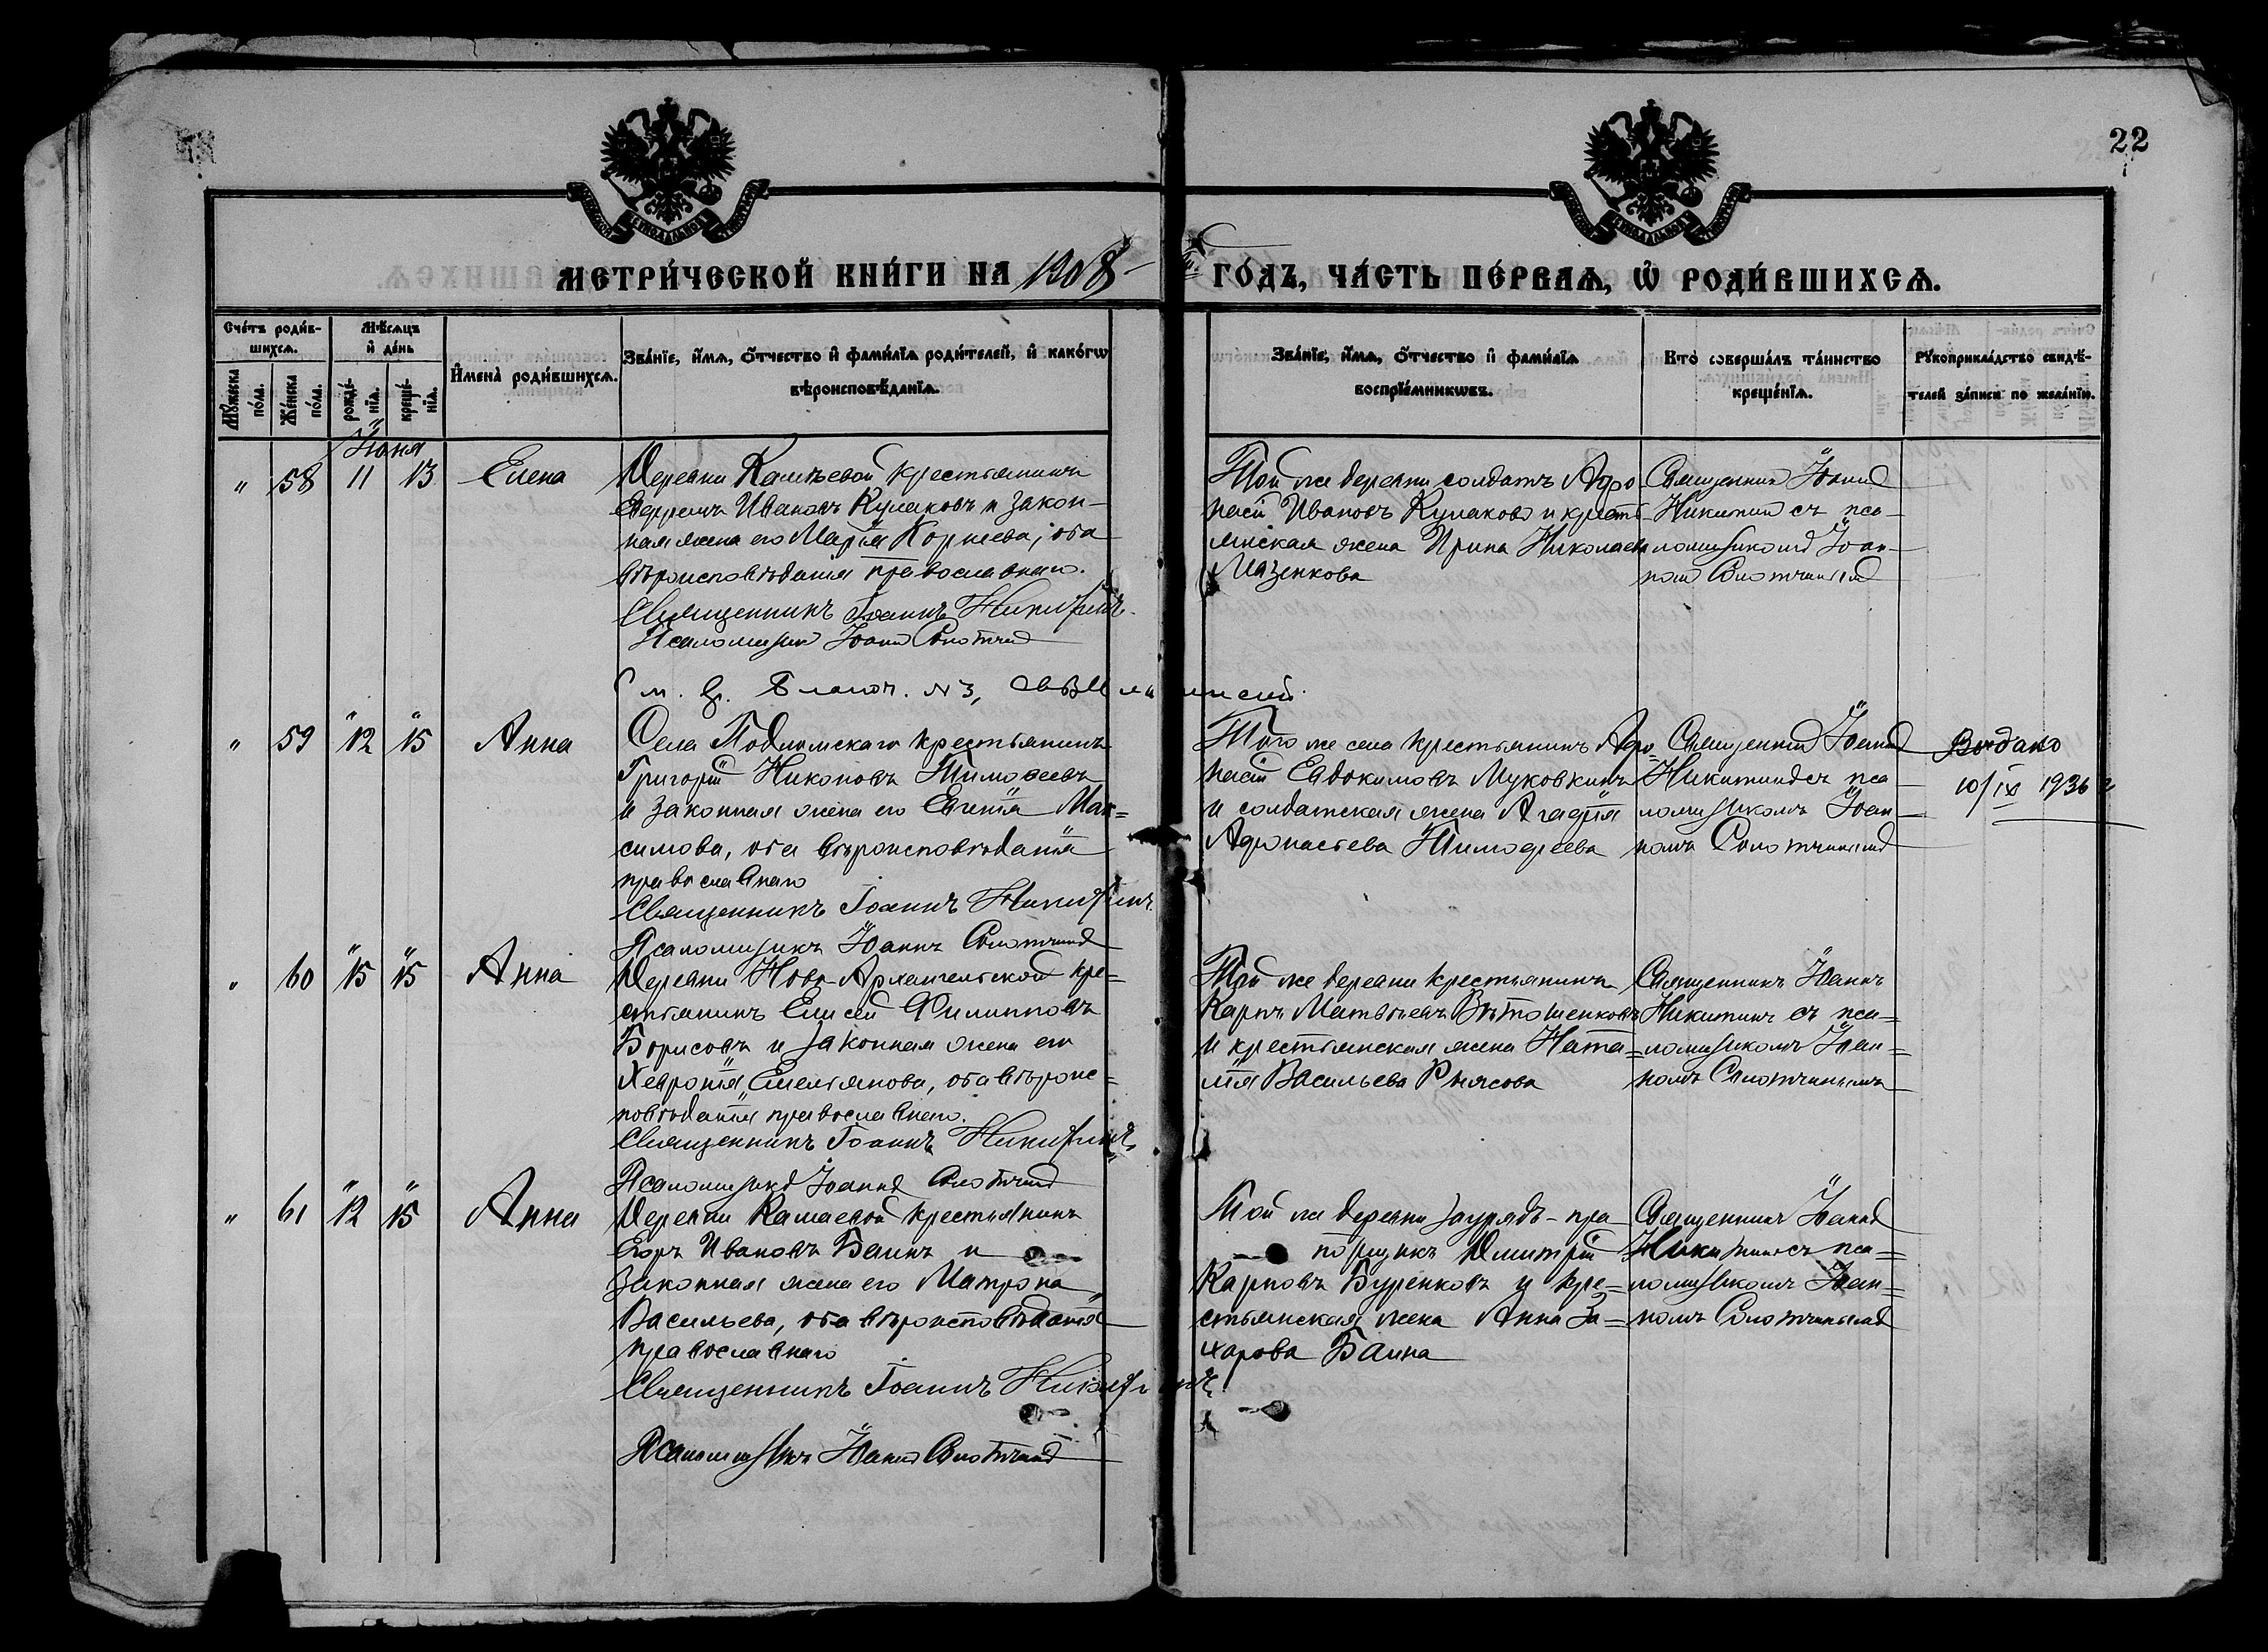 22
МЕТРИ́ЧЕСКОЙ КНИ́ГИ НА 1908 ГО́ДЪ, ЧА́СТЬ ПЕ́РВАѦ, Ѡ҆ РОДИ́ВШИХСѦ.
Сче́тъ роди́в-
шихсѧ.
Мѣ́сѧцъ
и҆ де́нь
Мꙋ́жеска по́ла.
Же́нска по́ла.
рожде́-
нїѧ.
креще́-
нїѧ.
И҆мена̀ роди́вшихсѧ.
Зва́нїе, и҆́мѧ, ѻ҆́тчество и҆ фами́лїѧ роди́телей, и҆ како́гѡ
вѣроисповѣ́данїѧ.
Зва́нїе, и҆́мѧ, ѻ҆́тчество и҆ фами́лїѧ
воспрїе́мникѡвъ.
Кто̀ соверша́лъ та́инство
креще́нїѧ.
Рꙋкоприкла́дство свидѣ́-
телей за́писи по жела́нїю.
Іюня
" 58 11 13 Елена
Деревни крестьянинъ
Ивановъ Кулаковъ и закон-
ная жена его Марія Корнеева, оба
вѣроисповѣданія православнаго.
Священникъ Іоаннъ Никитинъ.
Псаломщикъ Іоаннъ
Той же деревни солдатъ Афо-
насій Ивановъ Кулаковъ и кресть-
янская жена Ирина Николаева
Мазенкова
Священникъ Іоаннъ
Никитинъ съ пса-
ломщикомъ Іоан-
номъ
См. Благоч. №3,
" 59 12 15 Анна
Села крестьянинъ
Григорій Никоновъ Тимофеевъ
и законная жена его Евгенія Мак=
симова, оба вѣроисповѣданія
православнаго
Священникъ Іоаннъ Никитинъ
Псаломщикъ Іоаннъ
Того же села крестьянинъ Афо-
насій Евдокимовъ Муковкинъ
и солдатская жена Агафія
Афонасьева Тимофеева
Священникъ Іоаннъ
Никитинъ съ пса-
ломщикомъ Іоан-
номъ
Выдано
10/IX 1936 г
" 60 15 15 Анна
Деревни Ново-Архангельской кре=
стьянинъ Елисей Филипповъ
Борисовъ и законная жена его
Хевронія Емельянова, оба вѣроис=
повѣданія православнаго.
Священникъ Іоаннъ Никитинъ
Псаломщикъ Іоаннъ
Той же деревни крестьянинъ
Карпъ Матвѣевъ Вѣтошенковъ
и крестьянская жена Ната=
лія Васильева
Священникъ Іоаннъ
Никитинъ съ пса=
ломщикомъ Іоан=
номъ
" 61 12 15 Анна
Деревни Камаевой крестьянинъ
Егоръ Ивановъ Баинъ и
законная жена его Матрона
Васильева, оба вѣроисповѣданія
православнаго
Священникъ Іоаннъ Никитинъ
Псаломщикъ Іоаннъ
Той же деревни заурядъ-пра-
порщикъ Димитрій
Карповъ Буренковъ и кре=
стьянская жена Анна За=
харова Баина
Священникъ Іоаннъ
Никитинъ съ пса=
ломщикомъ Іоан=
номъ